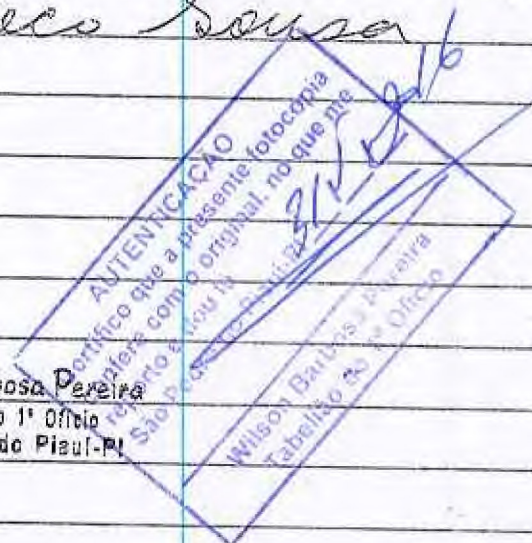 Sousa
AUTENTICAÇÃO
Certifico que a presente fotocopia
confere com o original, no que me
reporto e dou fé
São Pedro do Piauí-PI 31/
Wilson Barbosa Pereira
Tabelião do 1º Oficio
osa Pereira
o 1º Oficio
do Piauí-PI